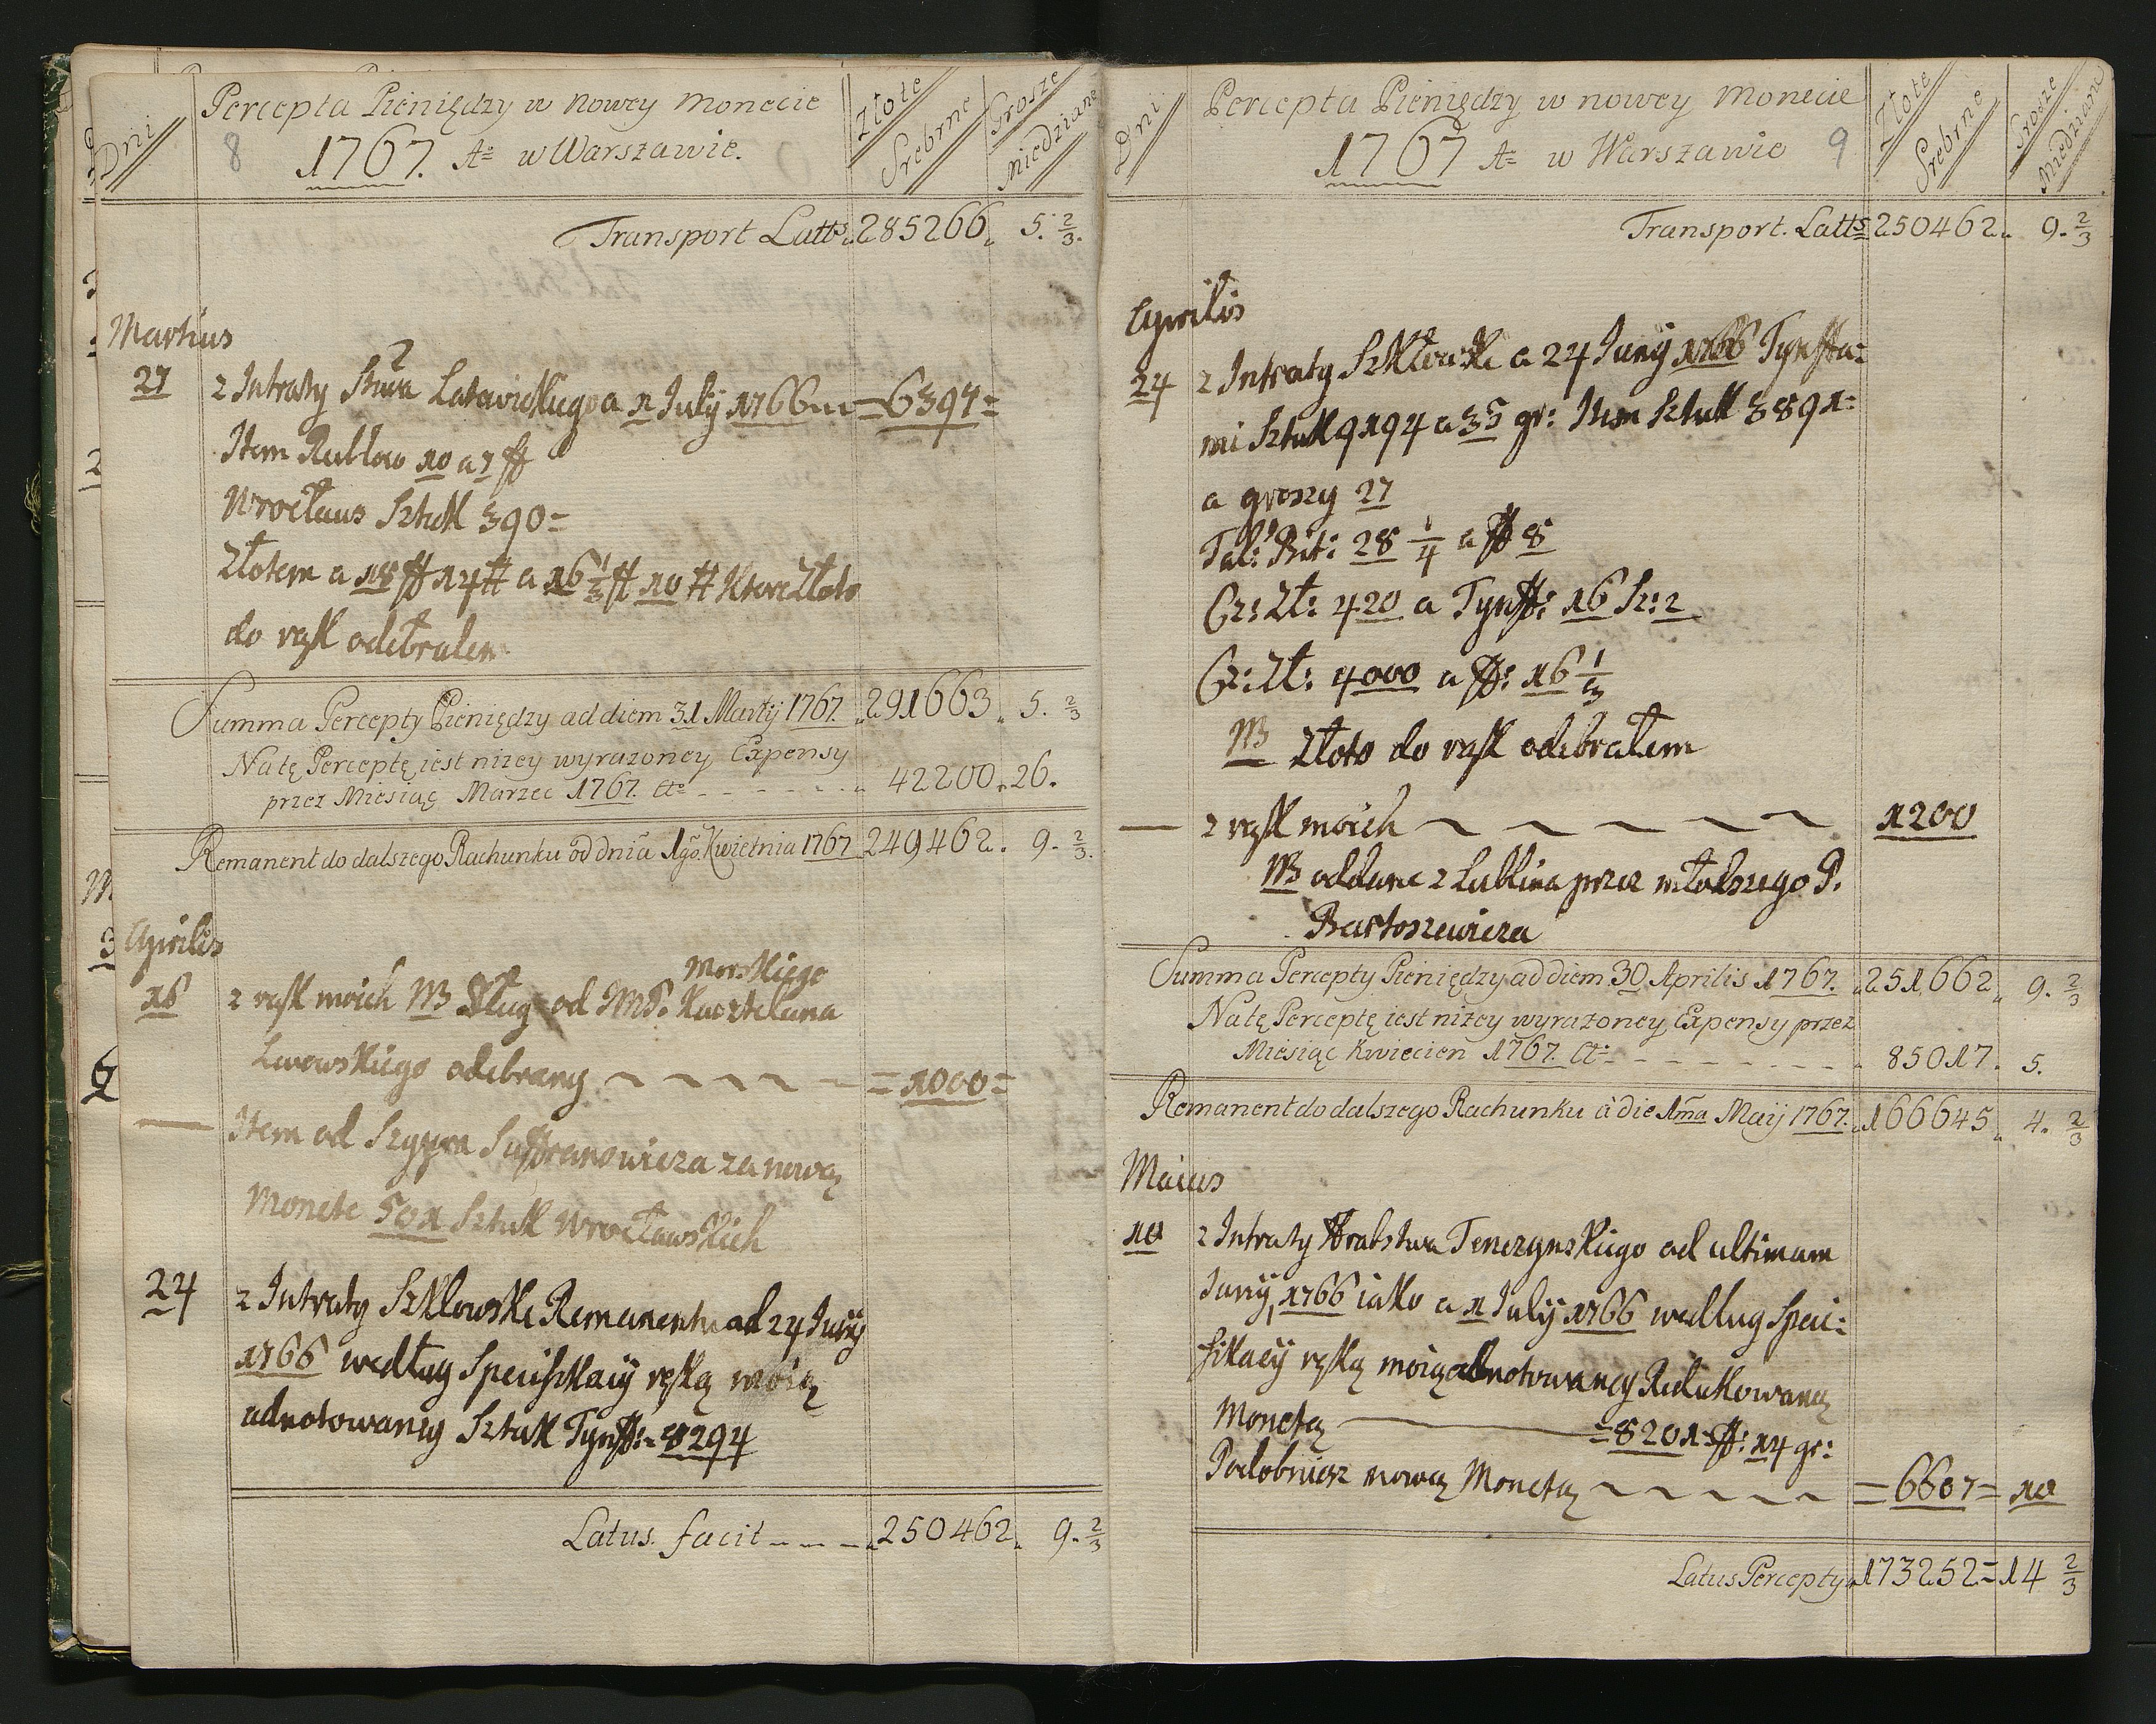 Dni
Percepta Pieniędzy w nowey monecie
8 1767. Ao w Warszawie.
Złote Srebrne
Grosze miedziane
Transport Latts 285266 5. 2/3.
Martius
27 z Intraty a 1 July 1766 =6397=
Item Rublow 10 a 7 ff
Wrocław Sztuk 390=
Złotem a 18 ff 14 # a 16 1/3 ff 10 # Ktore Złoto
do rąk odebrałem
Summa Percepty Pieniędzy ad diem 31 Martÿ 1767. 291663 5. 2/3
Na tę Perceptę iest niżey wyrażoney Expensy
przez Miesiąc Marzec 1767. Ao - - - - - - 42200. 26.
Remanent do dalszego Rachunku od dnia 1go Kwietnia 1767 249462. 9. 2/3.
Aprilis
Morskiego
16 z rąk moich NB Dług od JMP. Kasztelana
Lwowskiego odebrany =1000=
— Item od Szypra Suffranowicza za nową
Monete 501 Sztuk Wrocławskich
24 z Intraty Szklowske Remanentu ad 24 Junÿ
1766 według Specifikacÿ ręką moią
adnotowaney Sztuk Tynff:= 8294
Latus facit - - - 250462 9. 2/3
Dni
Percepta Pieniędzy w nowey monecie
1767 Ao w Warszawie 9
Złote Srebrne
Grosze Miedziane
Transport. Latts 250462 9. 2/3
Aprilis
24 z Intraty Szkłowske a 24 Junÿ 1766 Tynffa=
mi Sztuk 9194 a 35 gr: Item Sztuk 3891=
a groszy 27
Tal: Bit: 28 1/4 a ff 8
Cz: Zł: 420 a Tynff: 16 Sz: 2
Cz: Zł: 4000 a ff: 16 1/2
NB Złoto do rąk odebrałem
— z rąk moich 1200
NB oddane z Lublina przez młodszego P.
Bartoszewicza
Summa Percepty Pieniędzy ad diem 30 Aprilis 1767. 251662 9. 2/3
Na tę Perceptę iest niżey wyrażoney Expensy przez
Miesiąc Kwiecien 1767. Ao - - - - - - 85017. 5.
Remanent do dalszego Rachunku à die 1ma Maÿ 1767. 166645 4. 2/3
Maius
10 z Intraty Hrabstwa Tenczynskiego ad ultimam
Junÿ, 1766 iako a 1 Julÿ 1766 według Speci=
fikacÿ ręką moią adnotowaney Redukowaną
Monetą =8201= ff: 14 gr:
Podobniesz nową Monetą =6607= 10
Latus Percepty 173252= 14 2/3